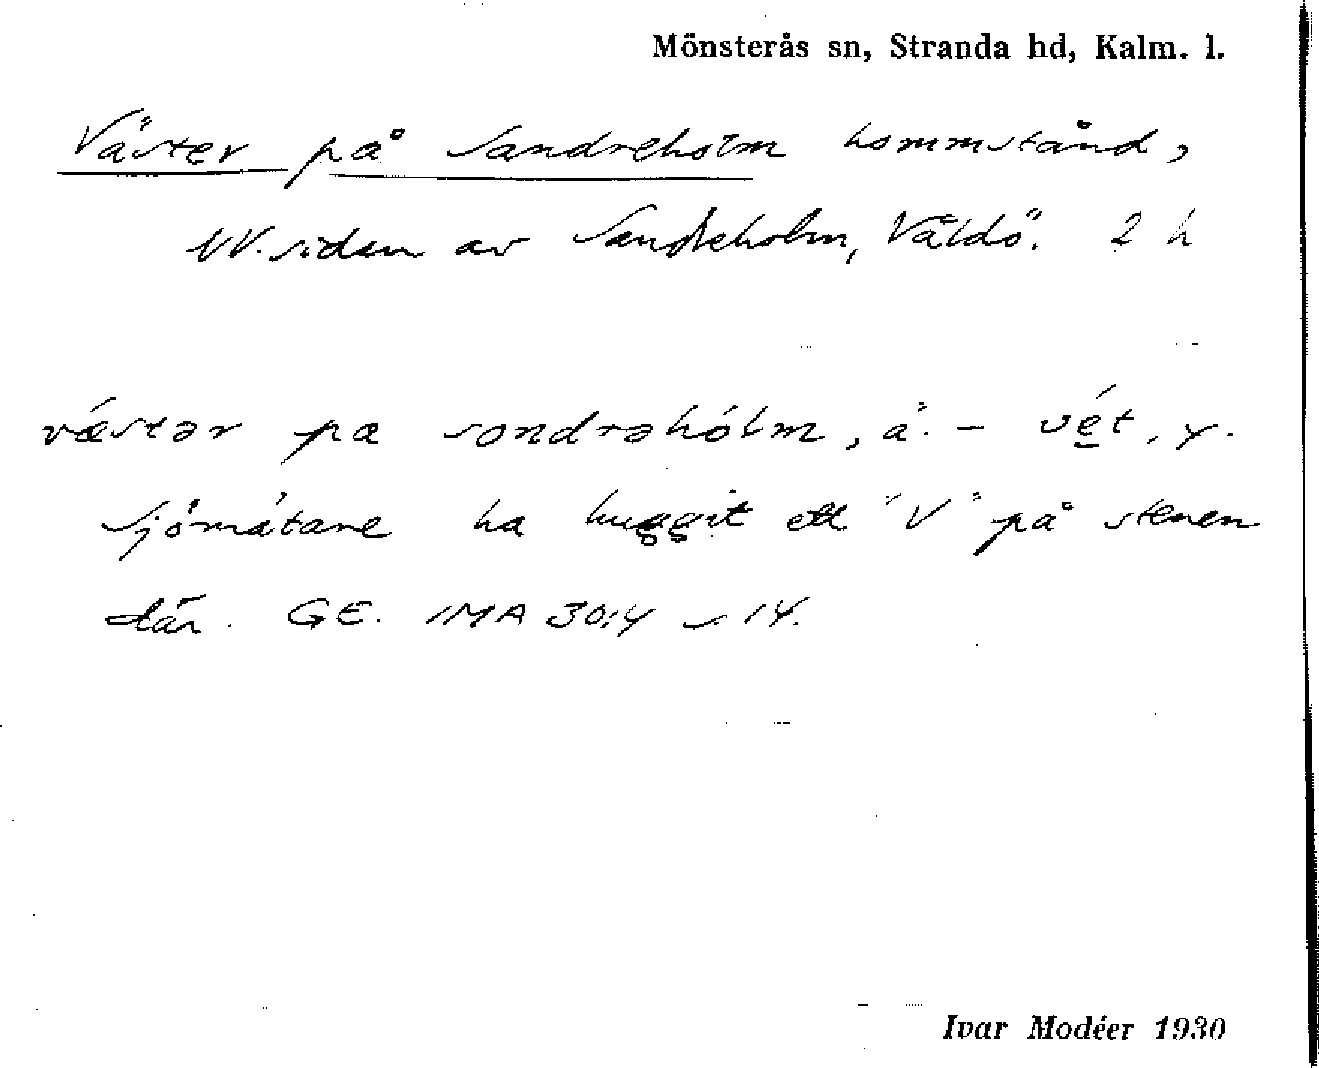 Mönsterås sn, Stranda hd, Kalm. l.
Väster på Sandreholm hommstånd,
NV.sidan av Sandreholm, Våldö. 2 h
væstər pa sondrəhólm, å. – vét, y.
Sjömätare ha huggit ett "V" på stenen
där. GE. IMA 30:4 s. 14.
Ivar Modéer 1930